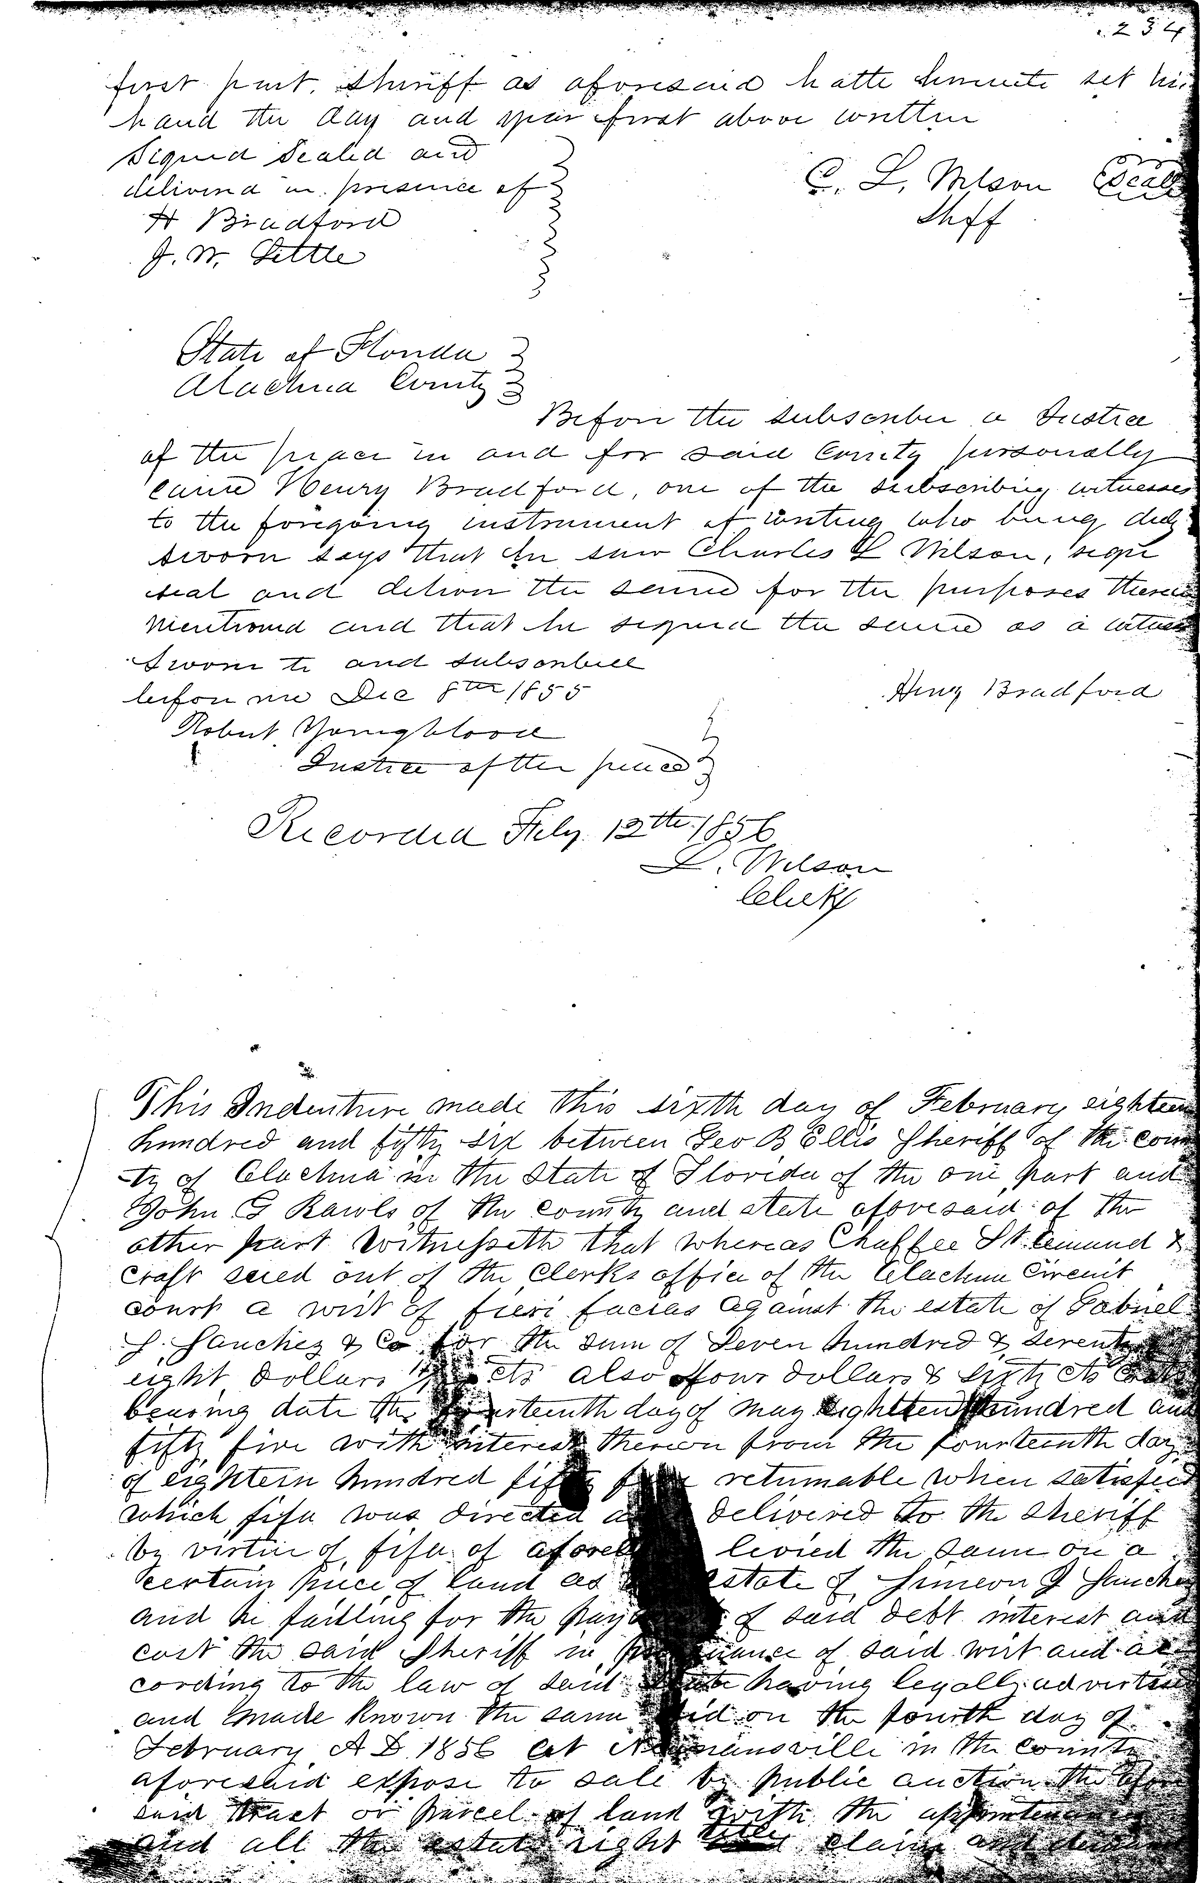 234
first part. Sheriff as aforesaid hath hereunto set his
hand the day and year first above written
Signed Sealed and
delivered in presence of
H Bradford
J. W. Little
C. L. Wilson Seal
Shff
State of Florida
Alachua County
Before the subscriber a Justice
of the peace in and for said County personally
came Henry Bradford, one of the subscribing witnesses
to the foregoing instrument of writing who being duly
sworn says that he saw Charles L Wilson, sign
seal and deliver the same for the purposes therein
mentioned and that he signed the same as a witness
Sworn to and subscribed
before me Dec 8th 1855
Henry Bradford
Robert Youngblood
Justice of the peace
Recorded Feby 12th 1856
L. Wilson
Clerk
This Indenture made this sixth day of February eighteen
hundred and fifty six between Geo B Ellis Sheriff of the coun
-ty of Alachua in the State of Florida of the one part and
John G Rawls of the county and state aforesaid of the
other part Witnesseth that whereas Chaffee St Amand &
Craft sued out of the Clerks office of the Alachua Circuit
court a writ of fieri facias against the estate of Gabriel
S. Sanchez & Co for the sum of Seven hundred & seventy
eight dollars cts also four dollars & sixty cts costs
bearing date the fourteenth day of may eighteen hundred and
fifty five with interest thereon from the fourteenth day
of eighteen hundred fifty five returnable when satisfied
which fifa was directed and delivered to the sheriff
by virtue of fifa of levied the same on a
certain piece of land as estate of Simeon J Sanchez
and he failling for the payment of said debt interest and
cost the said Sheriff in pursuance of said writ and ac
cording to the law of said state having legally advertised
and made known the same did on the fourth day of
February A D 1856 at Newnansville in the county
aforesaid expose to sale by public auction the afore
said tract or parcel of land with the appurtenances
and all the estate right title claim and demand